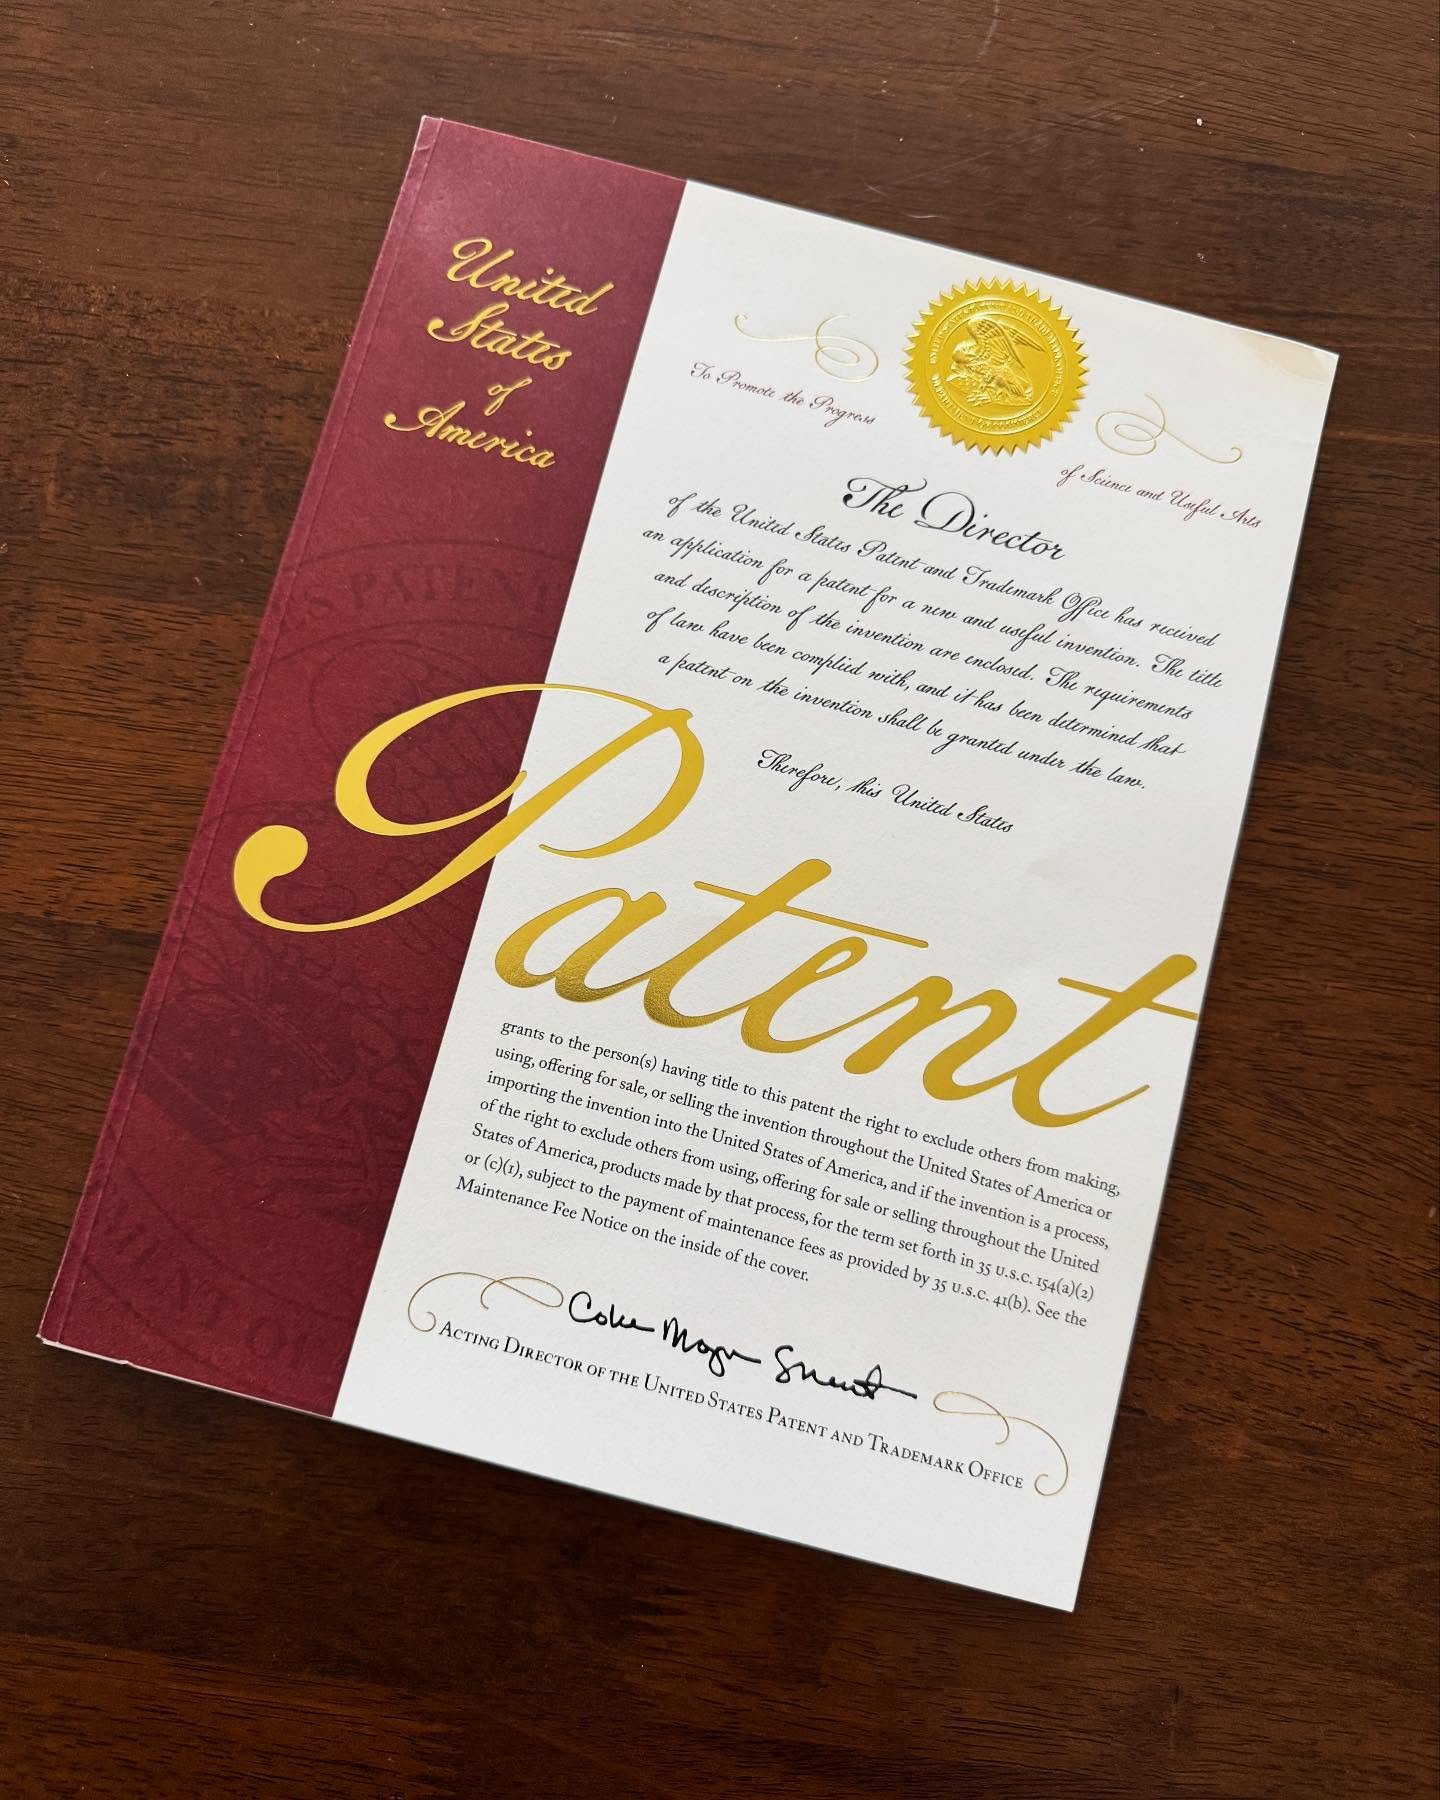 United
States
of
America
To Promote the Progress
of Science and Useful Arts
The Director
of the United States Patent and Trademark Office has received
an application for a patent for a new and useful invention. The title
and description of the invention are enclosed. The requirements
of law have been complied with, and it has been determined that
a patent on the invention shall be granted under the law.
Therefore, this United States
Patent
grants to the person(s) having title to this patent the right to exclude others from making,
using, offering for sale, or selling the invention throughout the United States of America or
importing the invention into the United States of America, and if the invention is a process,
of the right to exclude others from using, offering for sale or selling throughout the United
States of America, products made by that process, for the term set forth in 35 U.S.C. 154(a)(2)
or (c)(1), subject to the payment of maintenance fees as provided by 35 U.S.C. 41(b). See the
Maintenance Fee Notice on the inside of the cover.
Coke Morgan Stewart
Acting Director of the United States Patent and Trademark Office